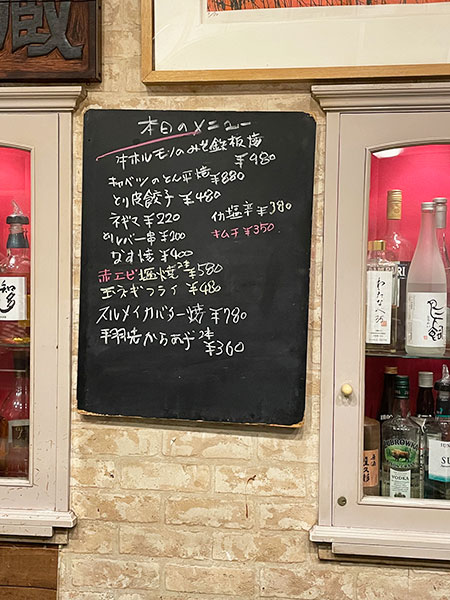 蔵
本日のメニュー
牛ホルモンのみそ鉄板焼
¥980
キャベツのとん平焼 ¥880
とり皮餃子 ¥480
ネギマ ¥220
イカ塩辛 ¥380
とりレバー串 ¥200
キムチ ¥350
なす焼 ¥400
赤エビ塩焼 2本 ¥580
玉ネギフライ ¥480
スルメイカバター焼 ¥780
手羽先からあげ 2本
¥360
知多
VODKA